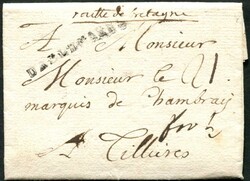 routte de bretagne
A Monsieur
Monsieur le
marquis de Chambray
A Tillieres